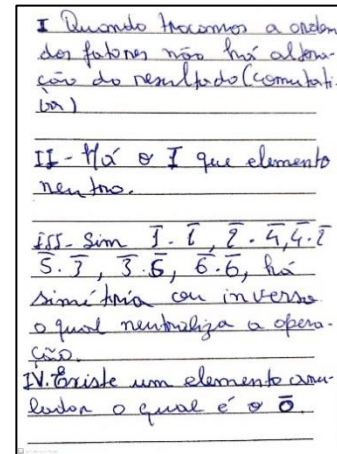 I Quando trocamos a ordem
dos fatores não há altera-
ção do resultado (comutati-
va)
II - Há o 1̅ que elemento
neutro.
III - Sim 1̅ . 1̅ , 2̅ . 4̅, 4̅ . 2̅
5̅ . 3̅ , 3̅ . 5̅, 6̅ . 6̅, há
simétria ou inverso
o qual neutraliza a opera-
ção.
IV. Existe um elemento anu-
lador o qual é o 0̅.